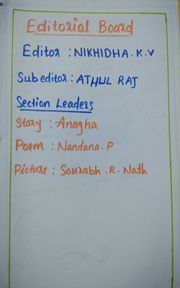 Editorial Board
Editor : NIKHIDHA.K.V
Subeditor : ATHUL RAJ
Section Leaders
Story : Anagha
Poem : Nandana.P
Picture : Sourabh.R.Nath